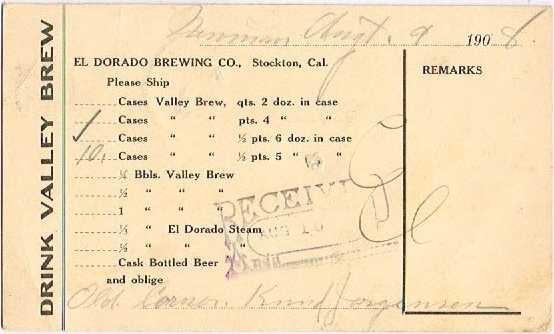 DRINK VALLEY BREW
Newman, Augt. 9 1908
EL DORADO BREWING CO., Stockton, Cal.
REMARKS
Please Ship
Cases Valley Brew, qts. 2 doz. in case
Cases " " pts. 4 " "
✓ Cases " " ½ pts. 6 doz. in case
10. Cases " " ½ pts. 5 " "
¼ Bbls. Valley Brew
½ " " "
1 " " "
¼ " El Dorado Steam
½ " " "
Cask Bottled Beer
and oblige
RECEIVED
AUG 10
Old Corner. Knud Jorgensen